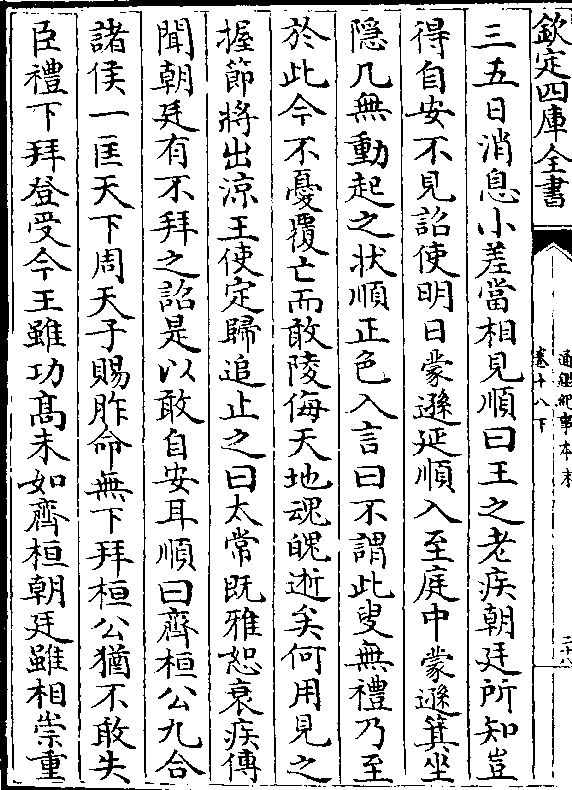 欽定四庫全書
通鑑紀事本末
卷十八下
二十八
三五日消息小差當相見順曰王之老疾朝廷所知豈
得自安不見詔使明日蒙遜延順入至庭中蒙遜箕坐
隱几無動起之狀順正色入言曰不謂此叟無禮乃至
於此今不憂覆亡而敢陵侮天地魂魄逝矣何用見之
握節將出涼王使定歸追止之曰太常既雅恕衰疾傳
聞朝廷有不拜之詔是以敢自安耳順曰齊桓公九合
諸侯一匡天下周天子賜胙命無下拜桓公猶不敢失
臣禮下拜登受今王雖功髙未如齊桓朝廷雖相崇重